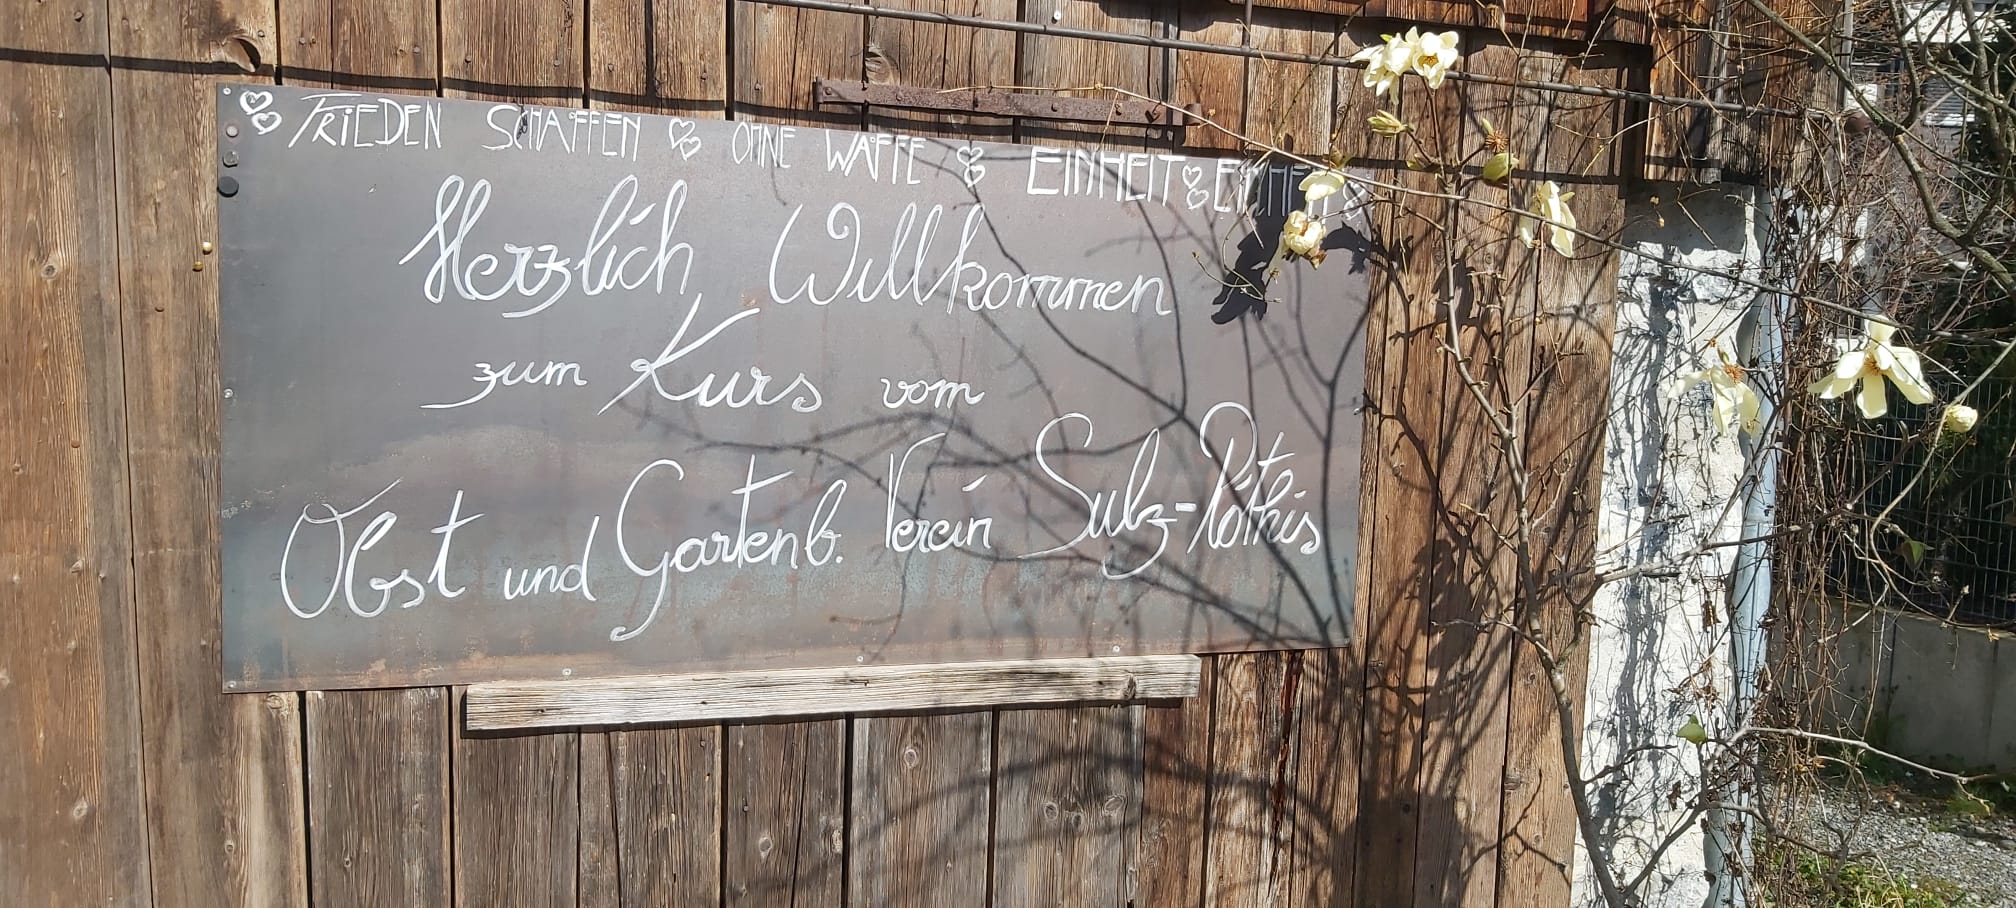 FRIEDEN SCHAFFEN OHNE WAFFE EINHEIT EINHEIT
Herzlich Willkommen
zum Kurs vom
Obst und Gartenb. Verein Sulz-Röthis